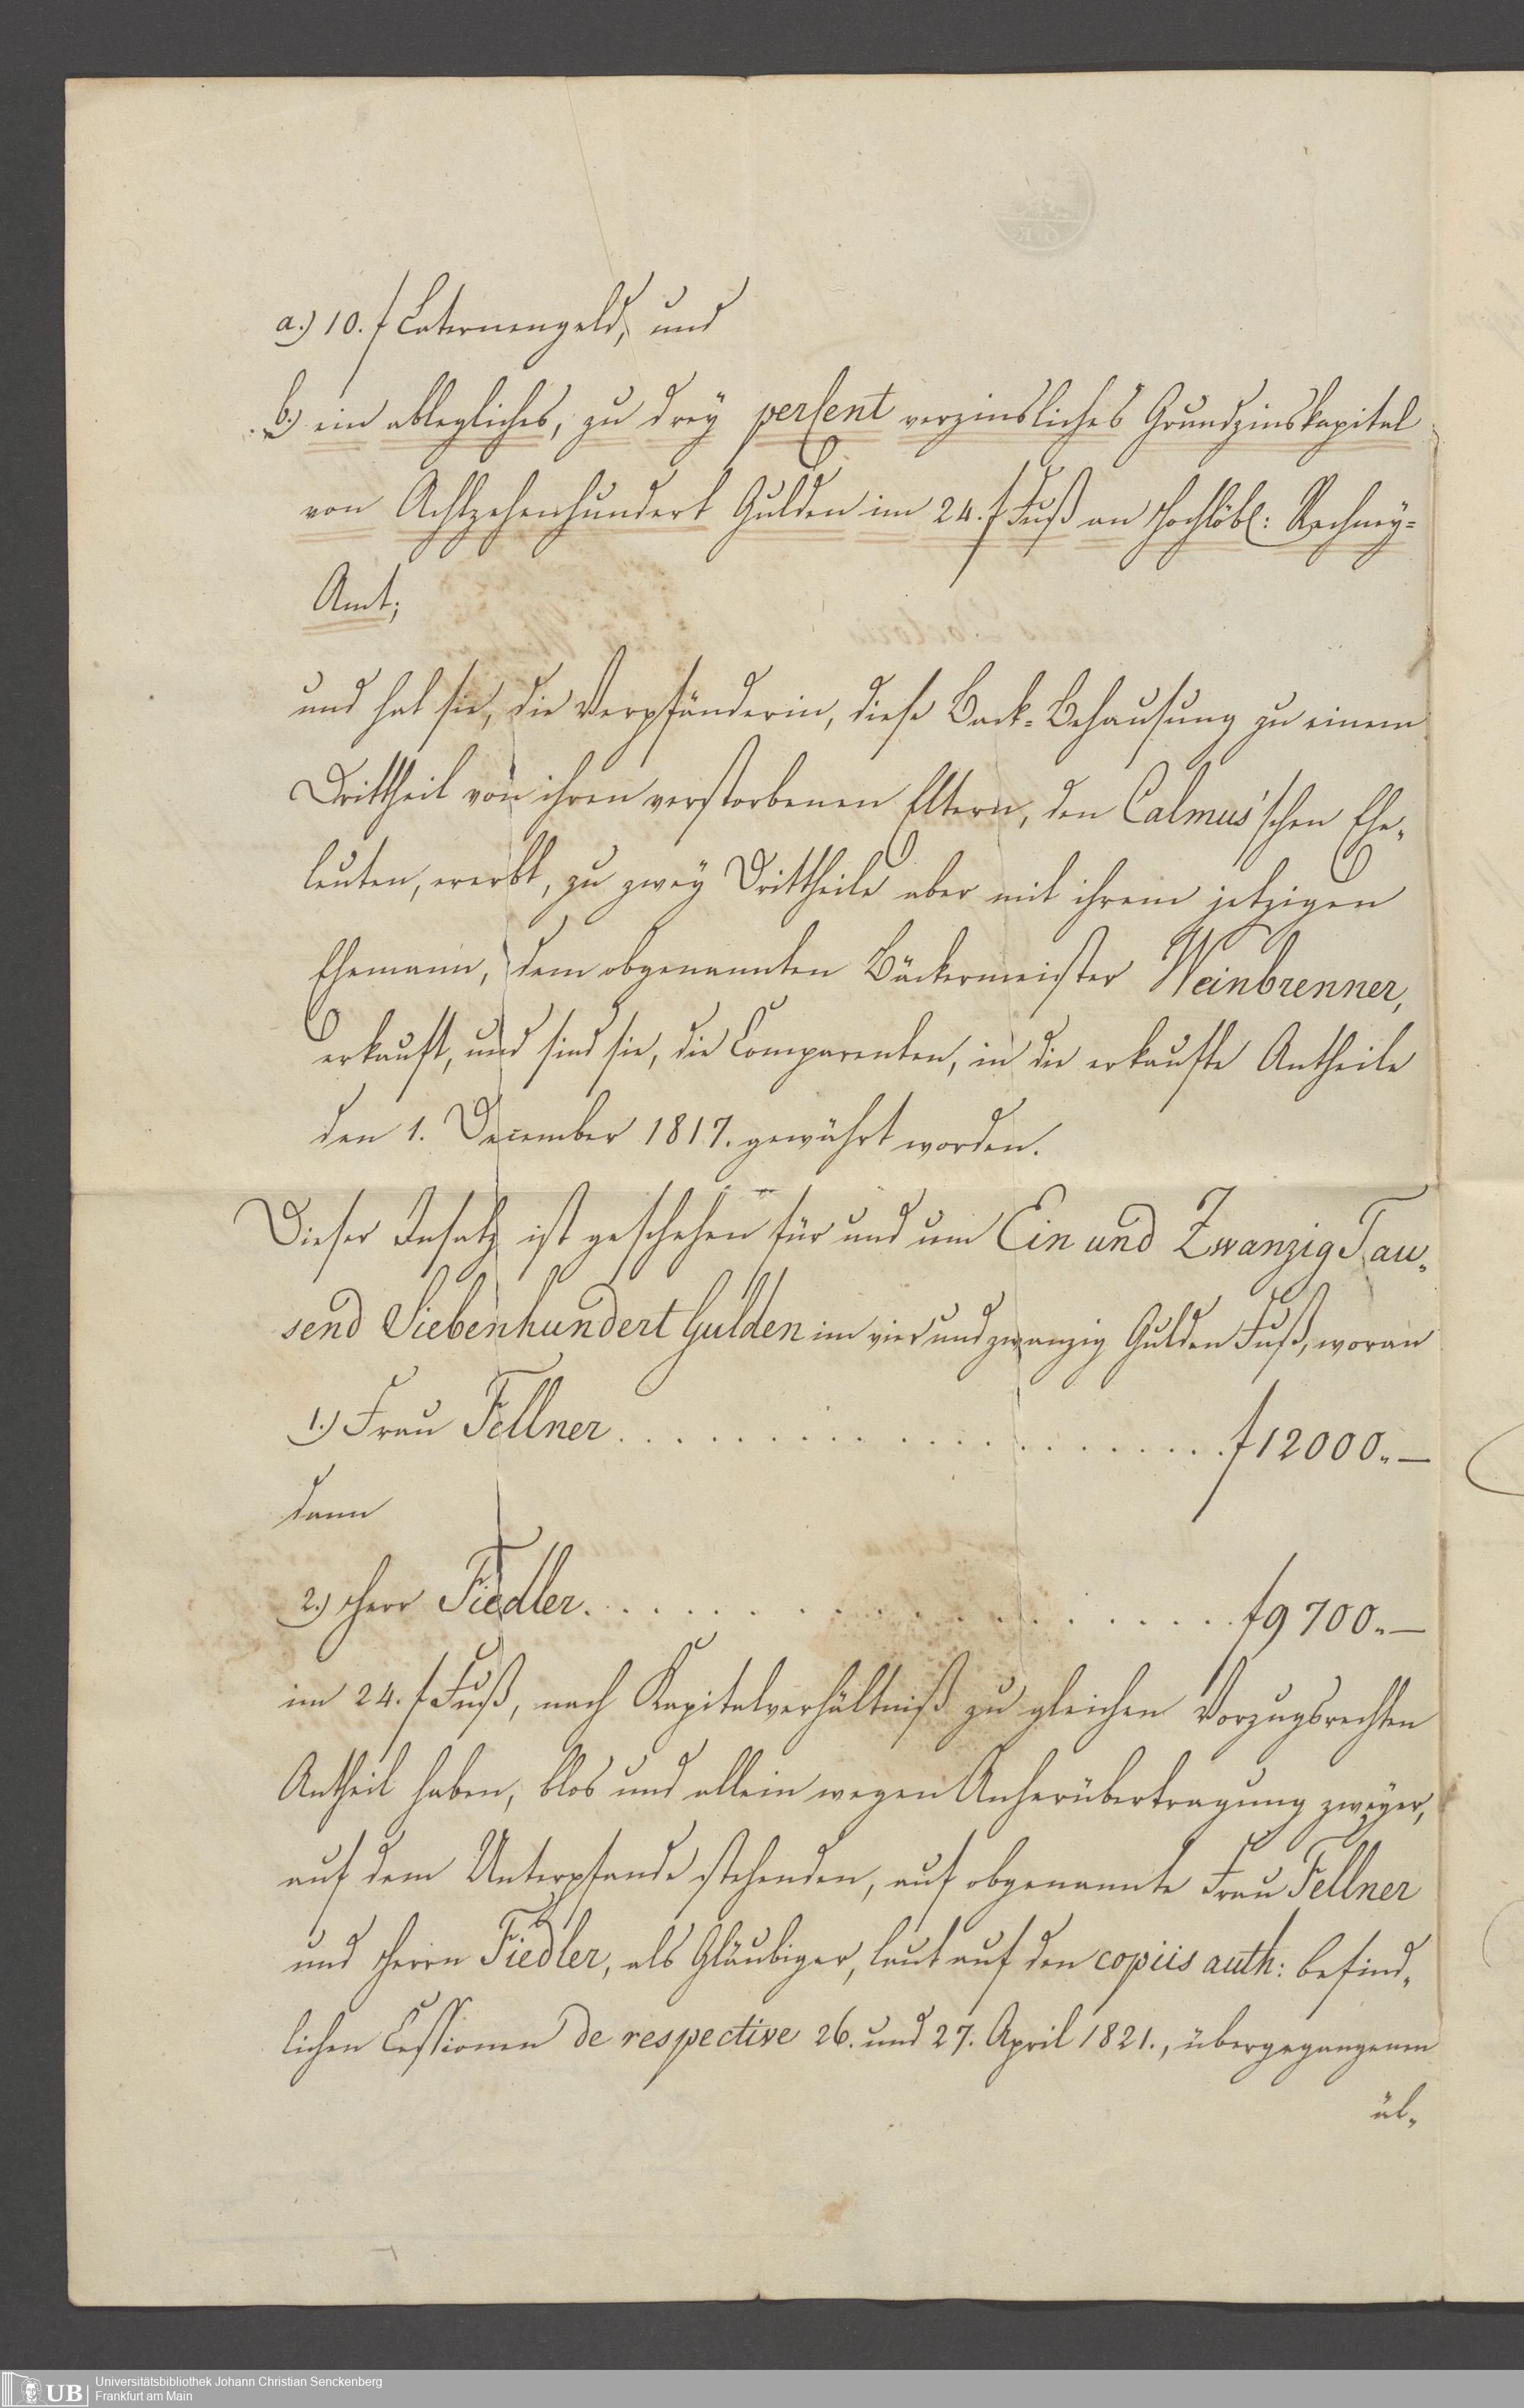 a.) 10. f Laternengeld, und
b.) ein ablegliches, zu drey perCent verzinsliches Grundzinskapital
von Achtzehenhundert Gulden im 24. f Fuß an Hochlöbl: Rechney-
Amt;
und hat sie, die Verpfänderin, diese Back-Behausung zu einem
Drittheil von ihren verstorbenen Eltern, den Calmus'schen Ehe-
leuten, ererbt, zu zwey Drittheile aber mit ihrem jetzigen
Ehemann, dem obgenannten Bäckermeister Weinbrenner,
erkauft, und sind sie, die Comparenten, in die erkaufte Antheile
den 1. December 1817. gewährt worden.
Dieser Insatz ist geschehen für und um Ein und Zwanzig Tau-
send Siebenhundert Gulden im vier und zwanzig Gulden Fuß, woran
1.) Frau Fellner . . . . . . . . . . . . . . . . . . . . f 12000.-
dann
2.) Herr Fiedler . . . . . . . . . . . . . . . . . . . . f 9700.-
im 24. f Fuß, nach Kapitalverhältniß zu gleichen Vorzugsrechten
Antheil haben, blos und allein wegen Anherübertragung zweyer,
auf dem Unterpfande stehenden, auf obgenannte Frau Fellner
und Herrn Fiedler, als Gläubiger, laut auf den copiis auth: befind-
lichen Cessionen de respective 26. und 27. April 1821., übergegangenen
äl-
UB
Universitätsbibliothek Johann Christian Senckenberg
Frankfurt am Main